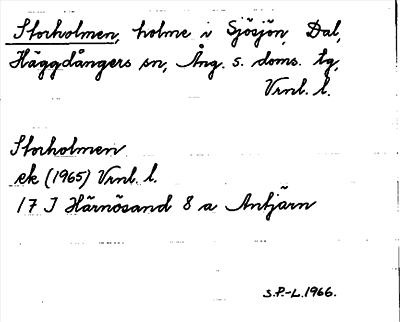 Storholmen, holme i Sjösjön, Dal,
Häggdångers sn, Ång. s. doms. tg,
Vrnl. l.
Storholmen
ek (1965) Vrnl. l.
17 J Härnösand 8 a Antjärn
S.P.-L. 1966.